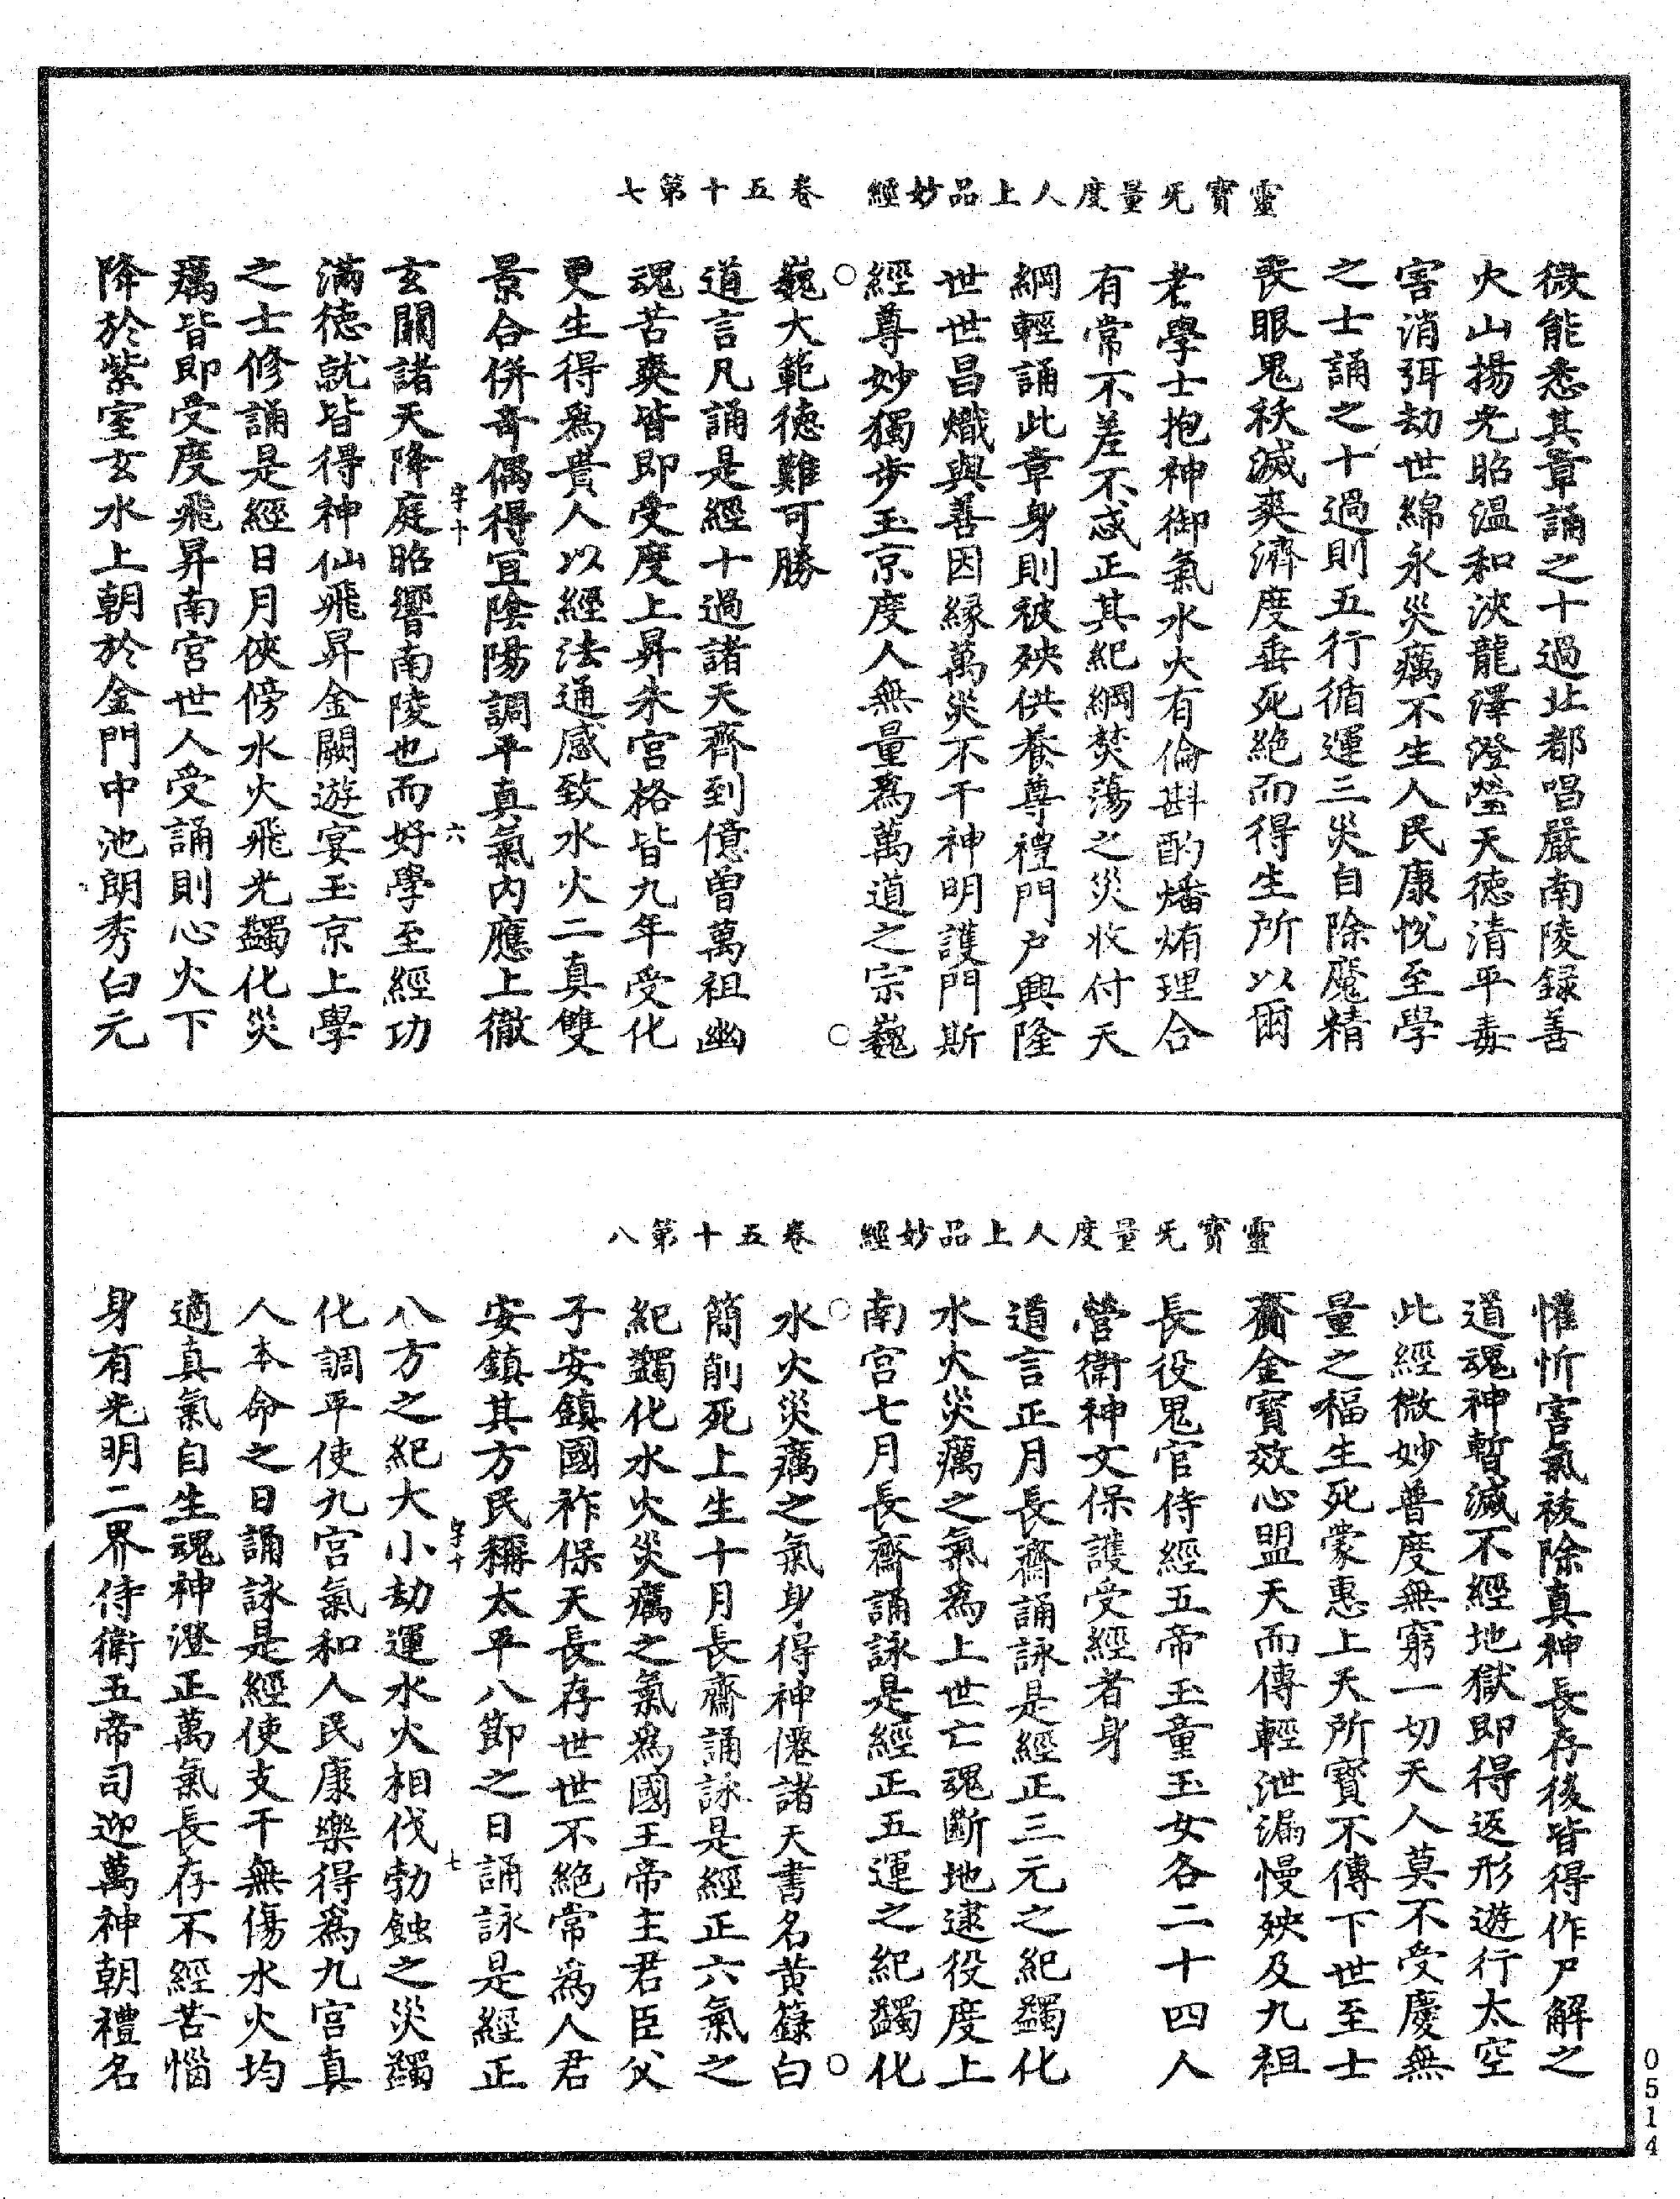 靈寶无量度人上品妙經　卷五十第七
微能悉其章誦之十過北都唱嚴南陵録善
火山揚光昭温和浹龍澤澄瑩天徳清平毒
害消弭劫世綿永災癘不生人民康悦至學
之士誦之十過則五行循運三災自除魔精
喪眼鬼祅滅爽濟度垂死絶而得生所以爾
者學士抱神御氣水火有倫斟酌燔烠理合
有常不差不忒正其紀綱焚蕩之災收付天
綱輕誦此章身則被殃供養尊禮門户興隆
世世昌熾與善因縁萬災不干神明護門斯
經尊妙獨步玉京度人無量為萬道之宗巍
巍大範徳難可勝
道言凡誦是經十過諸天齊到億曾萬祖幽
魂苦爽皆即受度上昇朱宫格皆九年受化
更生得為貴人以經法通感致水火二真雙
景合併奇偶得宜陰陽調平真氣内應上徹
字十
六
玄關諸天降庭昭響南陵也而好學至經功
滿徳就皆得神仙飛昇金闕遊宴玉京上學
之士修誦是經日月俠傍水火飛光蠲化災
癘皆即受度飛昇南宫世人受誦則心火下
降於紫室玄水上朝於金門中池朗秀白元
靈寶无量度人上品妙經　卷五十第八
懽忻害氣祓除真神長存後皆得作尸解之
道魂神暫滅不經地獄即得返形遊行太空
此經微妙普度無窮一切天人莫不受慶無
量之福生死蒙惠上天所寶不傳下世至士
齎金寶效心盟天而傳輕泄漏慢殃及九祖
長役鬼官侍經五帝玉童玉女各二十四人
營衛神文保護受經者身
道言正月長齋誦詠是經正三元之紀蠲化
水火災癘之氣為上世亡魂斷地逮役度上
南宫七月長齋誦詠是經正五運之紀蠲化
水火災癘之氣身得神僊諸天書名黄籙白
簡削死上生十月長齋誦詠是經正六氣之
紀蠲化水火災癘之氣為國王帝主君臣父
子安鎮國祚保天長存世世不絶常為人君
安鎮其方民稱太平八節之日誦詠是經正
字十
七
八方之紀大小劫運水火相伐勃蝕之災蠲
化調平使九宫氣和人民康樂得為九宫真
人本命之日誦詠是經使支干無傷水火均
適真氣自生魂神澄正萬氣長存不經苦惱
身有光明二界侍衛五帝司迎萬神朝禮名
0514